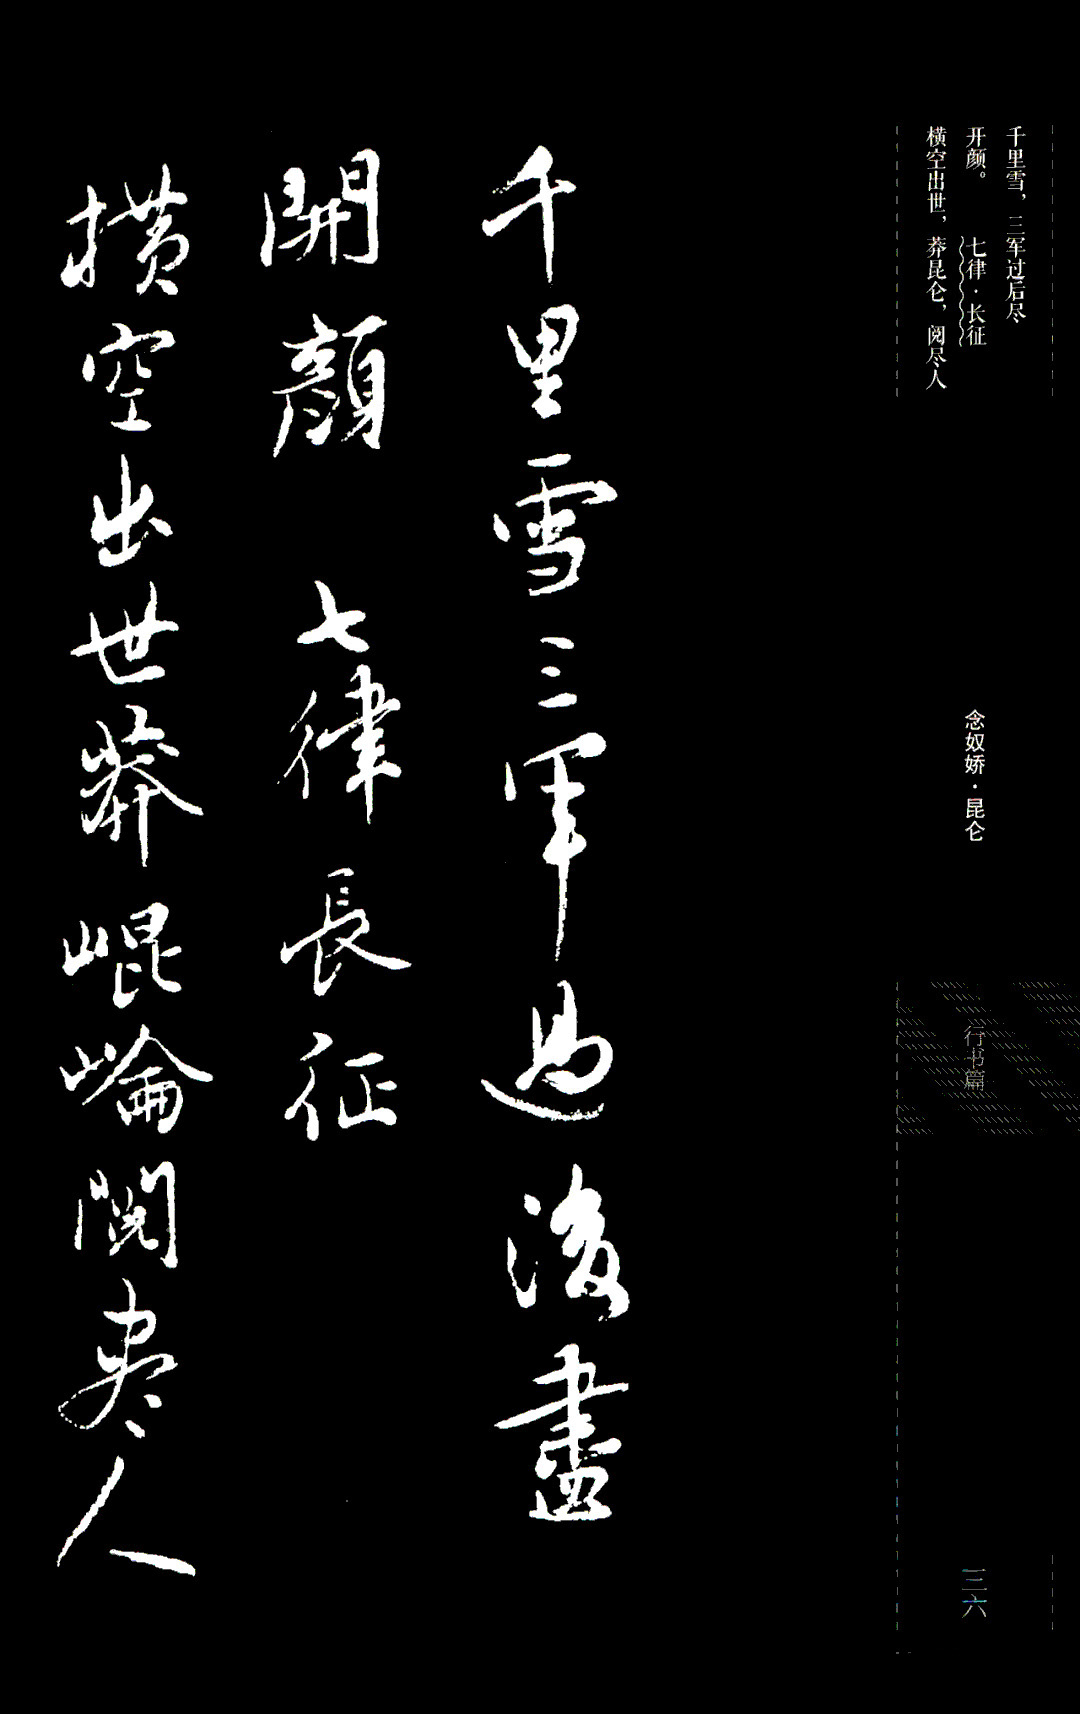 千里雪，三军过后尽
开颜。　七律·长征
横空出世，莽昆仑，阅尽人
念奴娇·昆仑
行书篇
三六
千里雪三軍過後盡
開顏　七律長征
橫空出世莽崐崙閱尽人